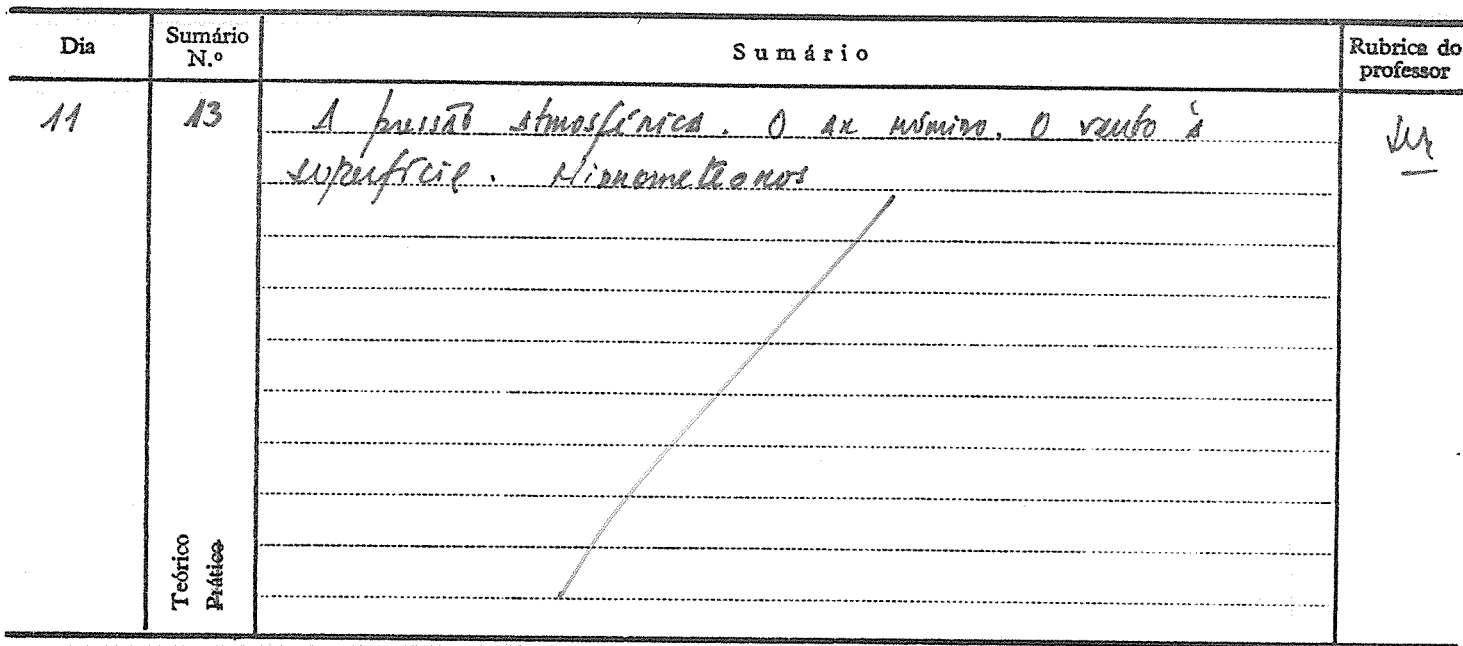 Dia Sumário N.º Sumário Rubrica do professor
11 13 A pressão atmosférica. O ar húmido. O vento à
superfície. Hidrometeoros
Teórico
Prático